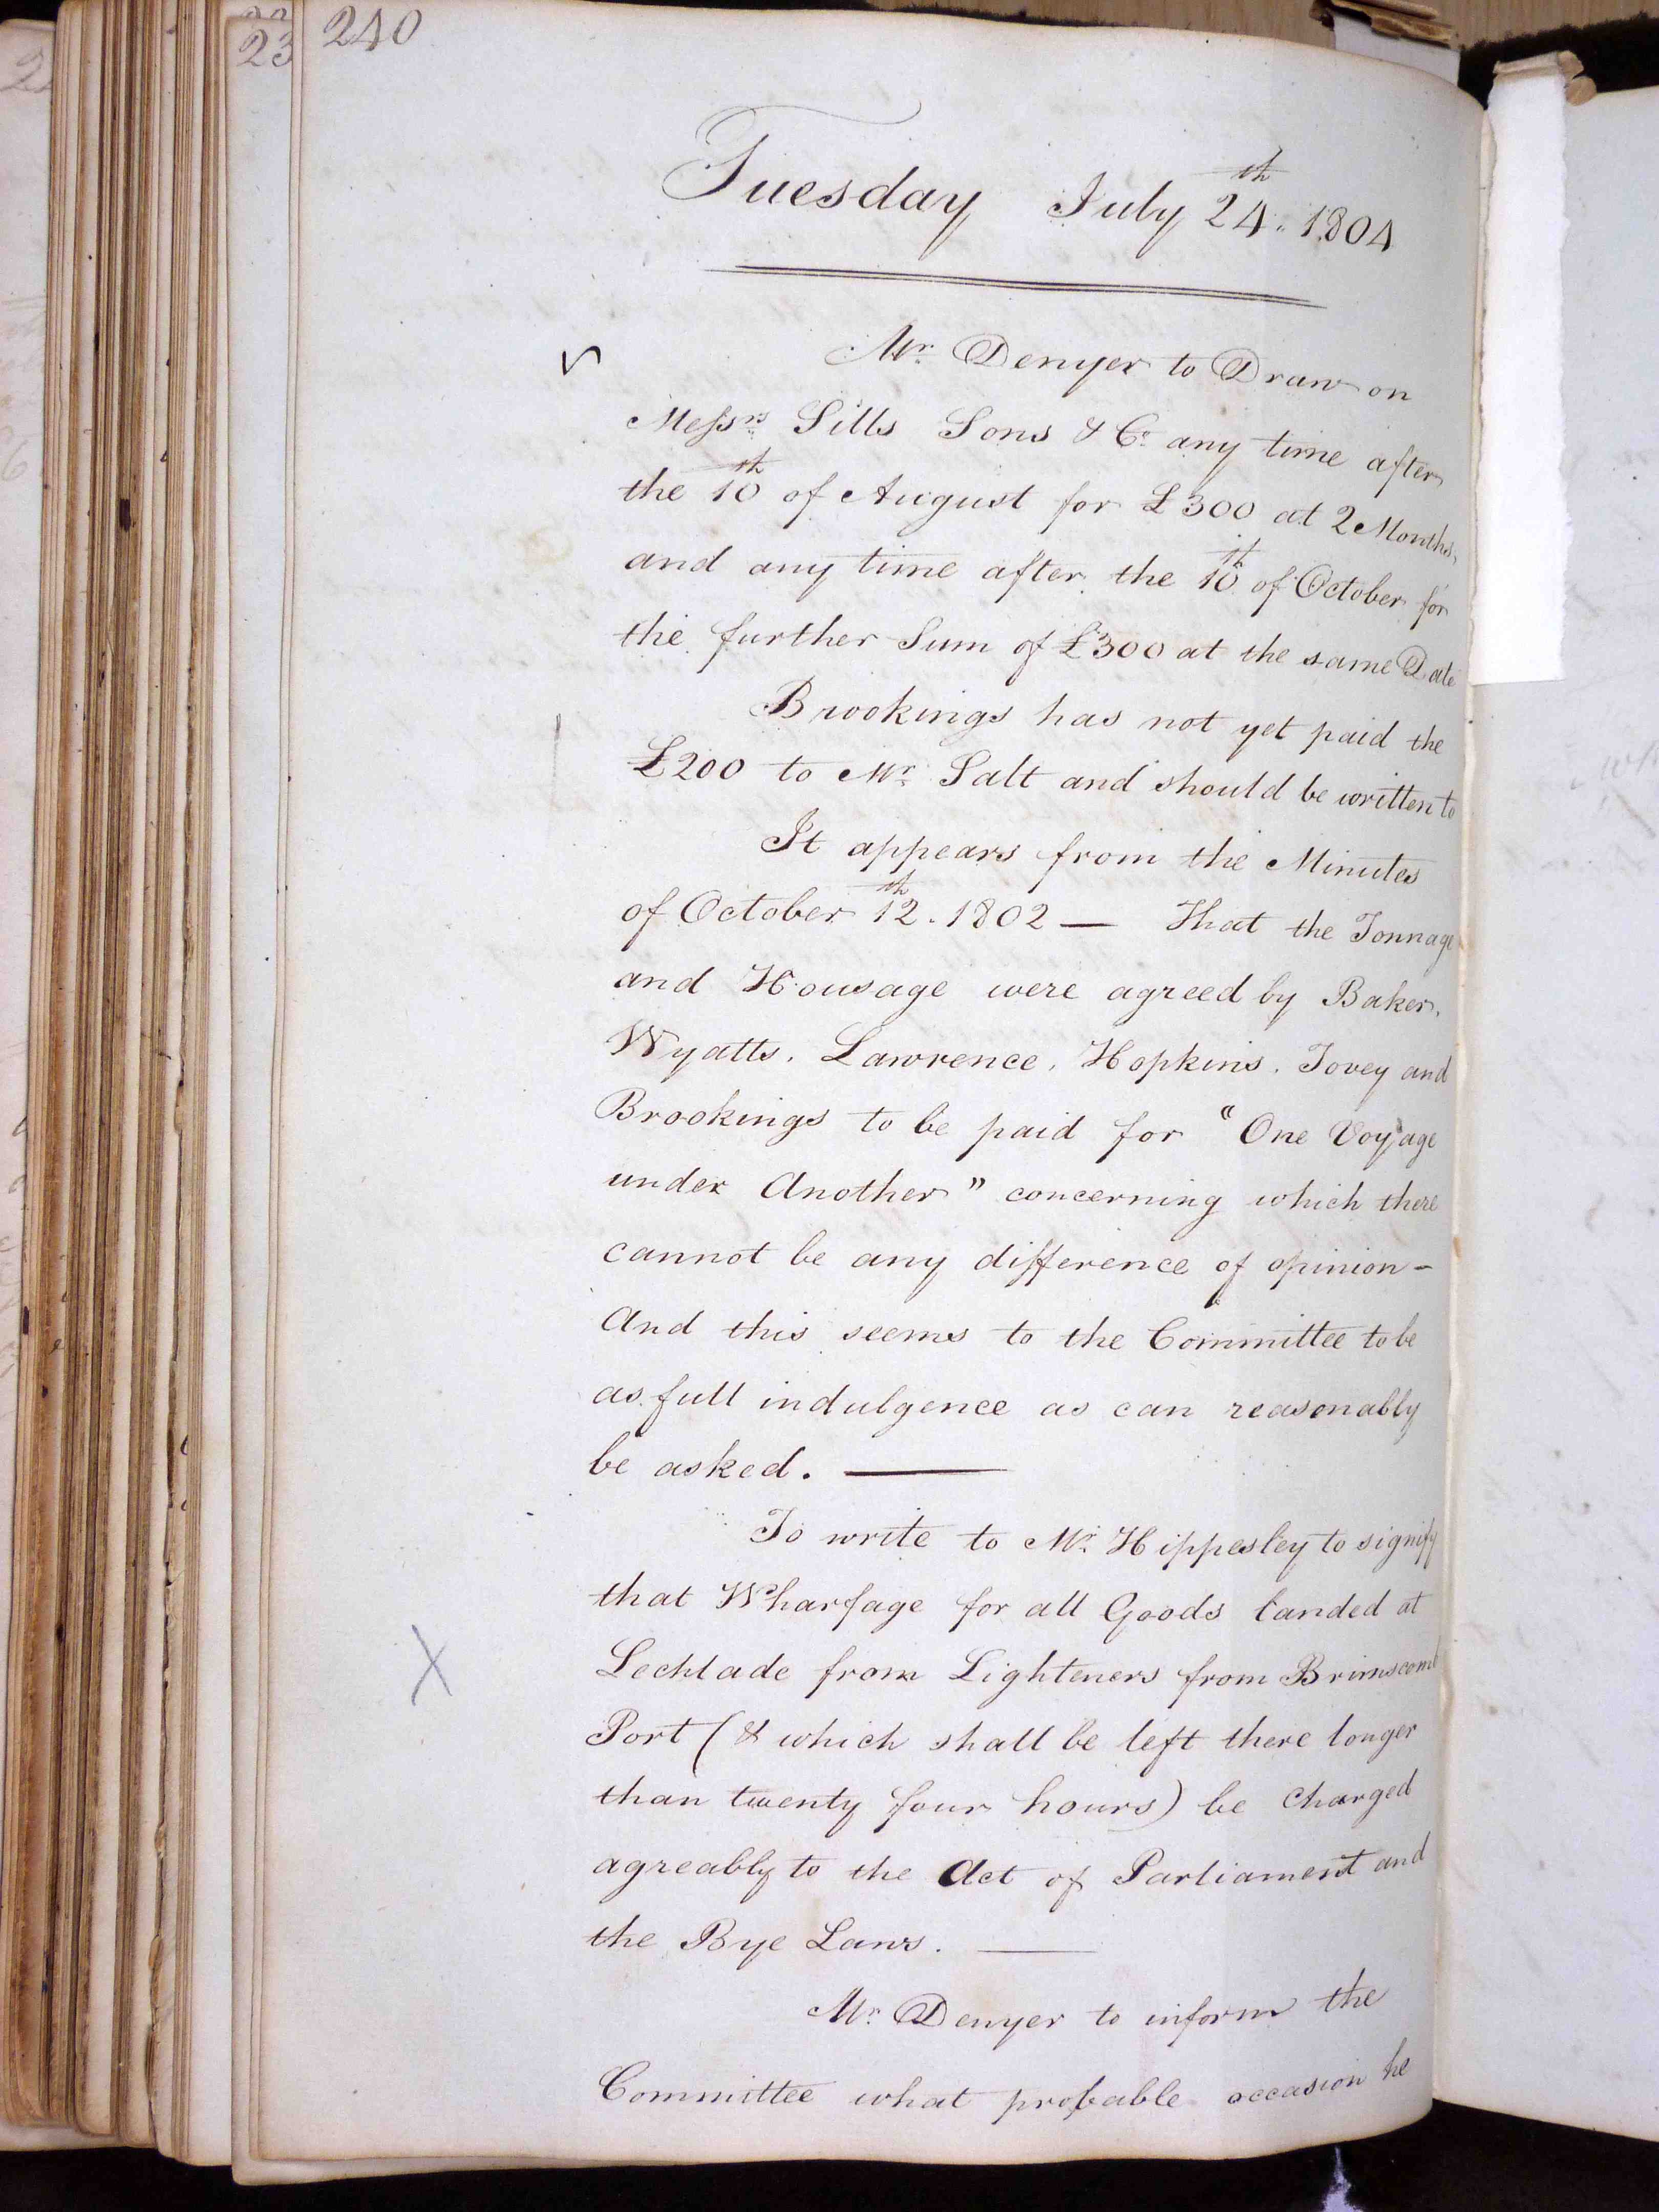 240
23
Tuesday July 24th. 1804
Mr. Denyer to Draw on
Messrs. Sills Sons & Co. any time after
the 10th of August for £300 at 2 Months,
and any time after the 10th of October for
the further Sum of £300 at the same Date
Brookings has not yet paid the
£200 to Mr. Salt and should be written to
It appears from the Minutes
of October 12th. 1802 — That the Tonnage
and Housage were agreed by Baker,
Wyatts, Lawrence, Hopkins, Tovey and
Brookings to be paid for "One Voyage
under Another" concerning which there
cannot be any difference of opinion -
And this seems to the Committee to be
as full indulgence as can reasonably
be asked. —
To write to Mr. Hippesley to signify
that Wharfage for all Goods landed at
Lechlade from Lighteners from Brimscomb
Port (& which shall be left there longer
than twenty four hours) be Charged
agreably to the Act of Parliament and
the Bye Laws. —
Mr. Denyer to inform the
Committee what probable occasion he